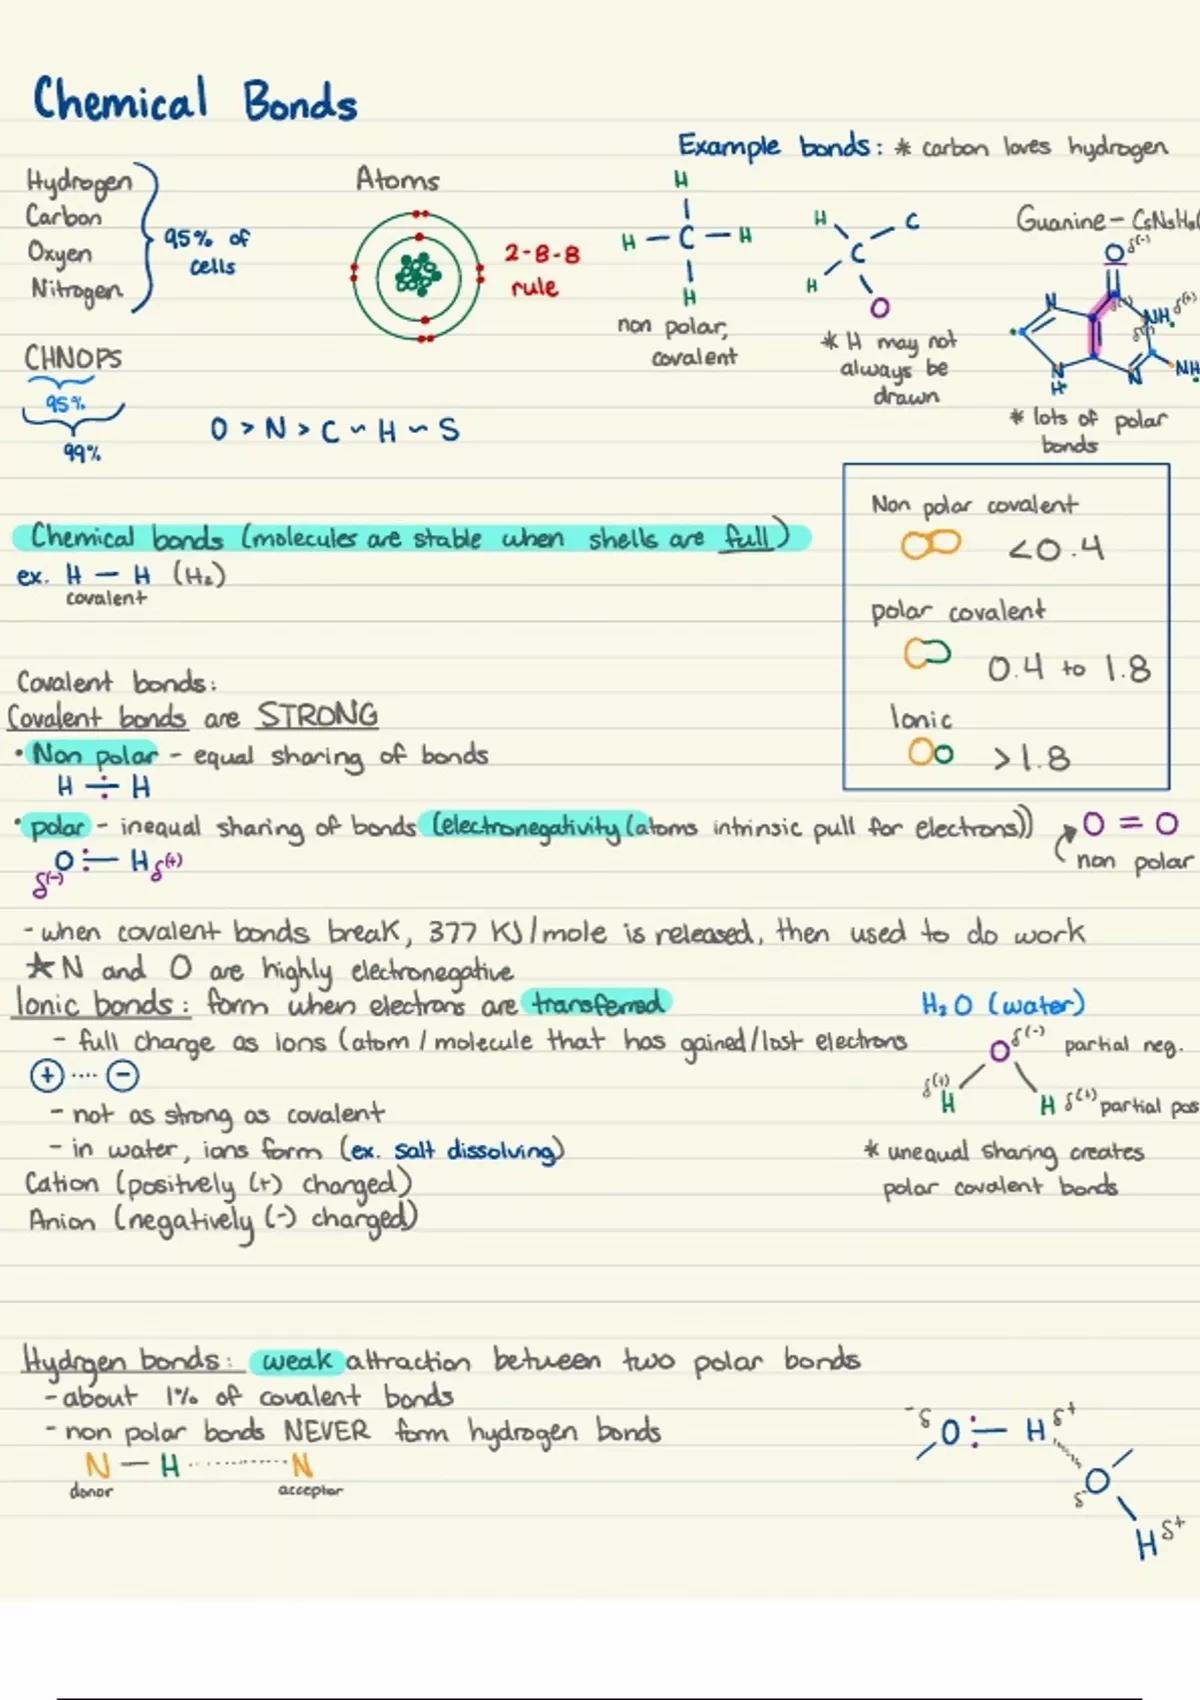 Chemical Bonds
Example bonds: * carbon loves hydrogen
Hydrogen
Carbon
Oxyen
Nitrogen
95% of
cells
Atoms
2-8-8
rule
H
H — C — H
H
non polar,
covalent
H C
C
H
O
* H may not
always be
drawn
Guanine - C5N5H5(
O δ(-)
N
NH δ(+)
N
H
N
NH
* lots of polar
bonds
CHNOPS
95%
99%
O > N > C ~ H ~ S
Non polar covalent
<0.4
polar covalent
0.4 to 1.8
Ionic
>1.8
Chemical bonds (molecules are stable when shells are full)
ex. H — H (H2)
covalent
Covalent bonds:
Covalent bonds are STRONG
• Non polar - equal sharing of bonds
H ÷ H
• polar - inequal sharing of bonds (electronegativity (atoms intrinsic pull for electrons))
O :— H δ(+)
δ(-)
O = O
non polar
- when covalent bonds break, 377 KJ/mole is released, then used to do work
★ N and O are highly electronegative
Ionic bonds: form when electrons are transferred
- full charge as ions (atom / molecule that has gained/lost electrons
+ .... -
- not as strong as covalent
- in water, ions form (ex. salt dissolving)
Cation (positvely (+) charged)
Anion (negatively (-) charged)
H2O (water)
O δ(-) partial neg.
δ(+)
H
H δ(+) partial pos
* unequal sharing creates
polar covalent bonds
Hydrgen bonds: weak attraction between two polar bonds
- about 1% of covalent bonds
- non polar bonds NEVER form hydrogen bonds
N — H ............ N
donor acceptor
-δ O :— H δ+
O
δ-
H δ+